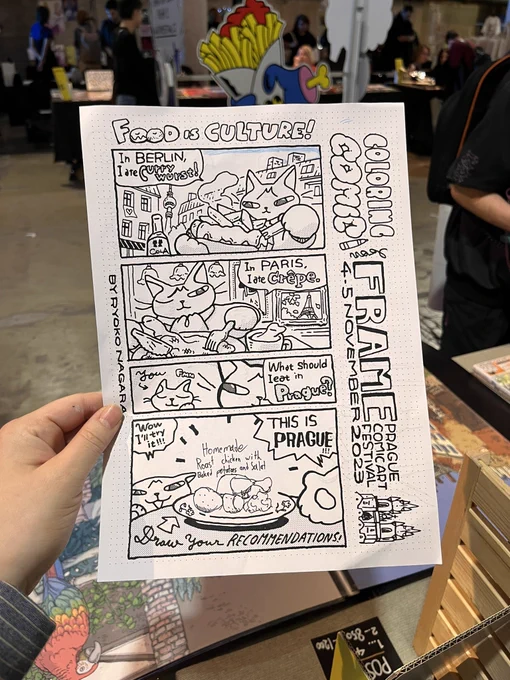 FOOD IS CULTURE!
In BERLIN,
I ate Curry
wurst!
COLA
In PARIS,
I ate Crêpe.
You
What should
I eat in
Prague?
Wow
I'll try
it!!!
THIS IS
PRAGUE
!!!
Homemade
Roast chicken with
Baked potatoes and Salat
Draw Your RECOMMENDATIONS!
BY RYOKO NAGARA
COLORING
COMP
FRAME
PRAGUE
COMIC ART
FESTIVAL
4-5 NOVEMBER 2023